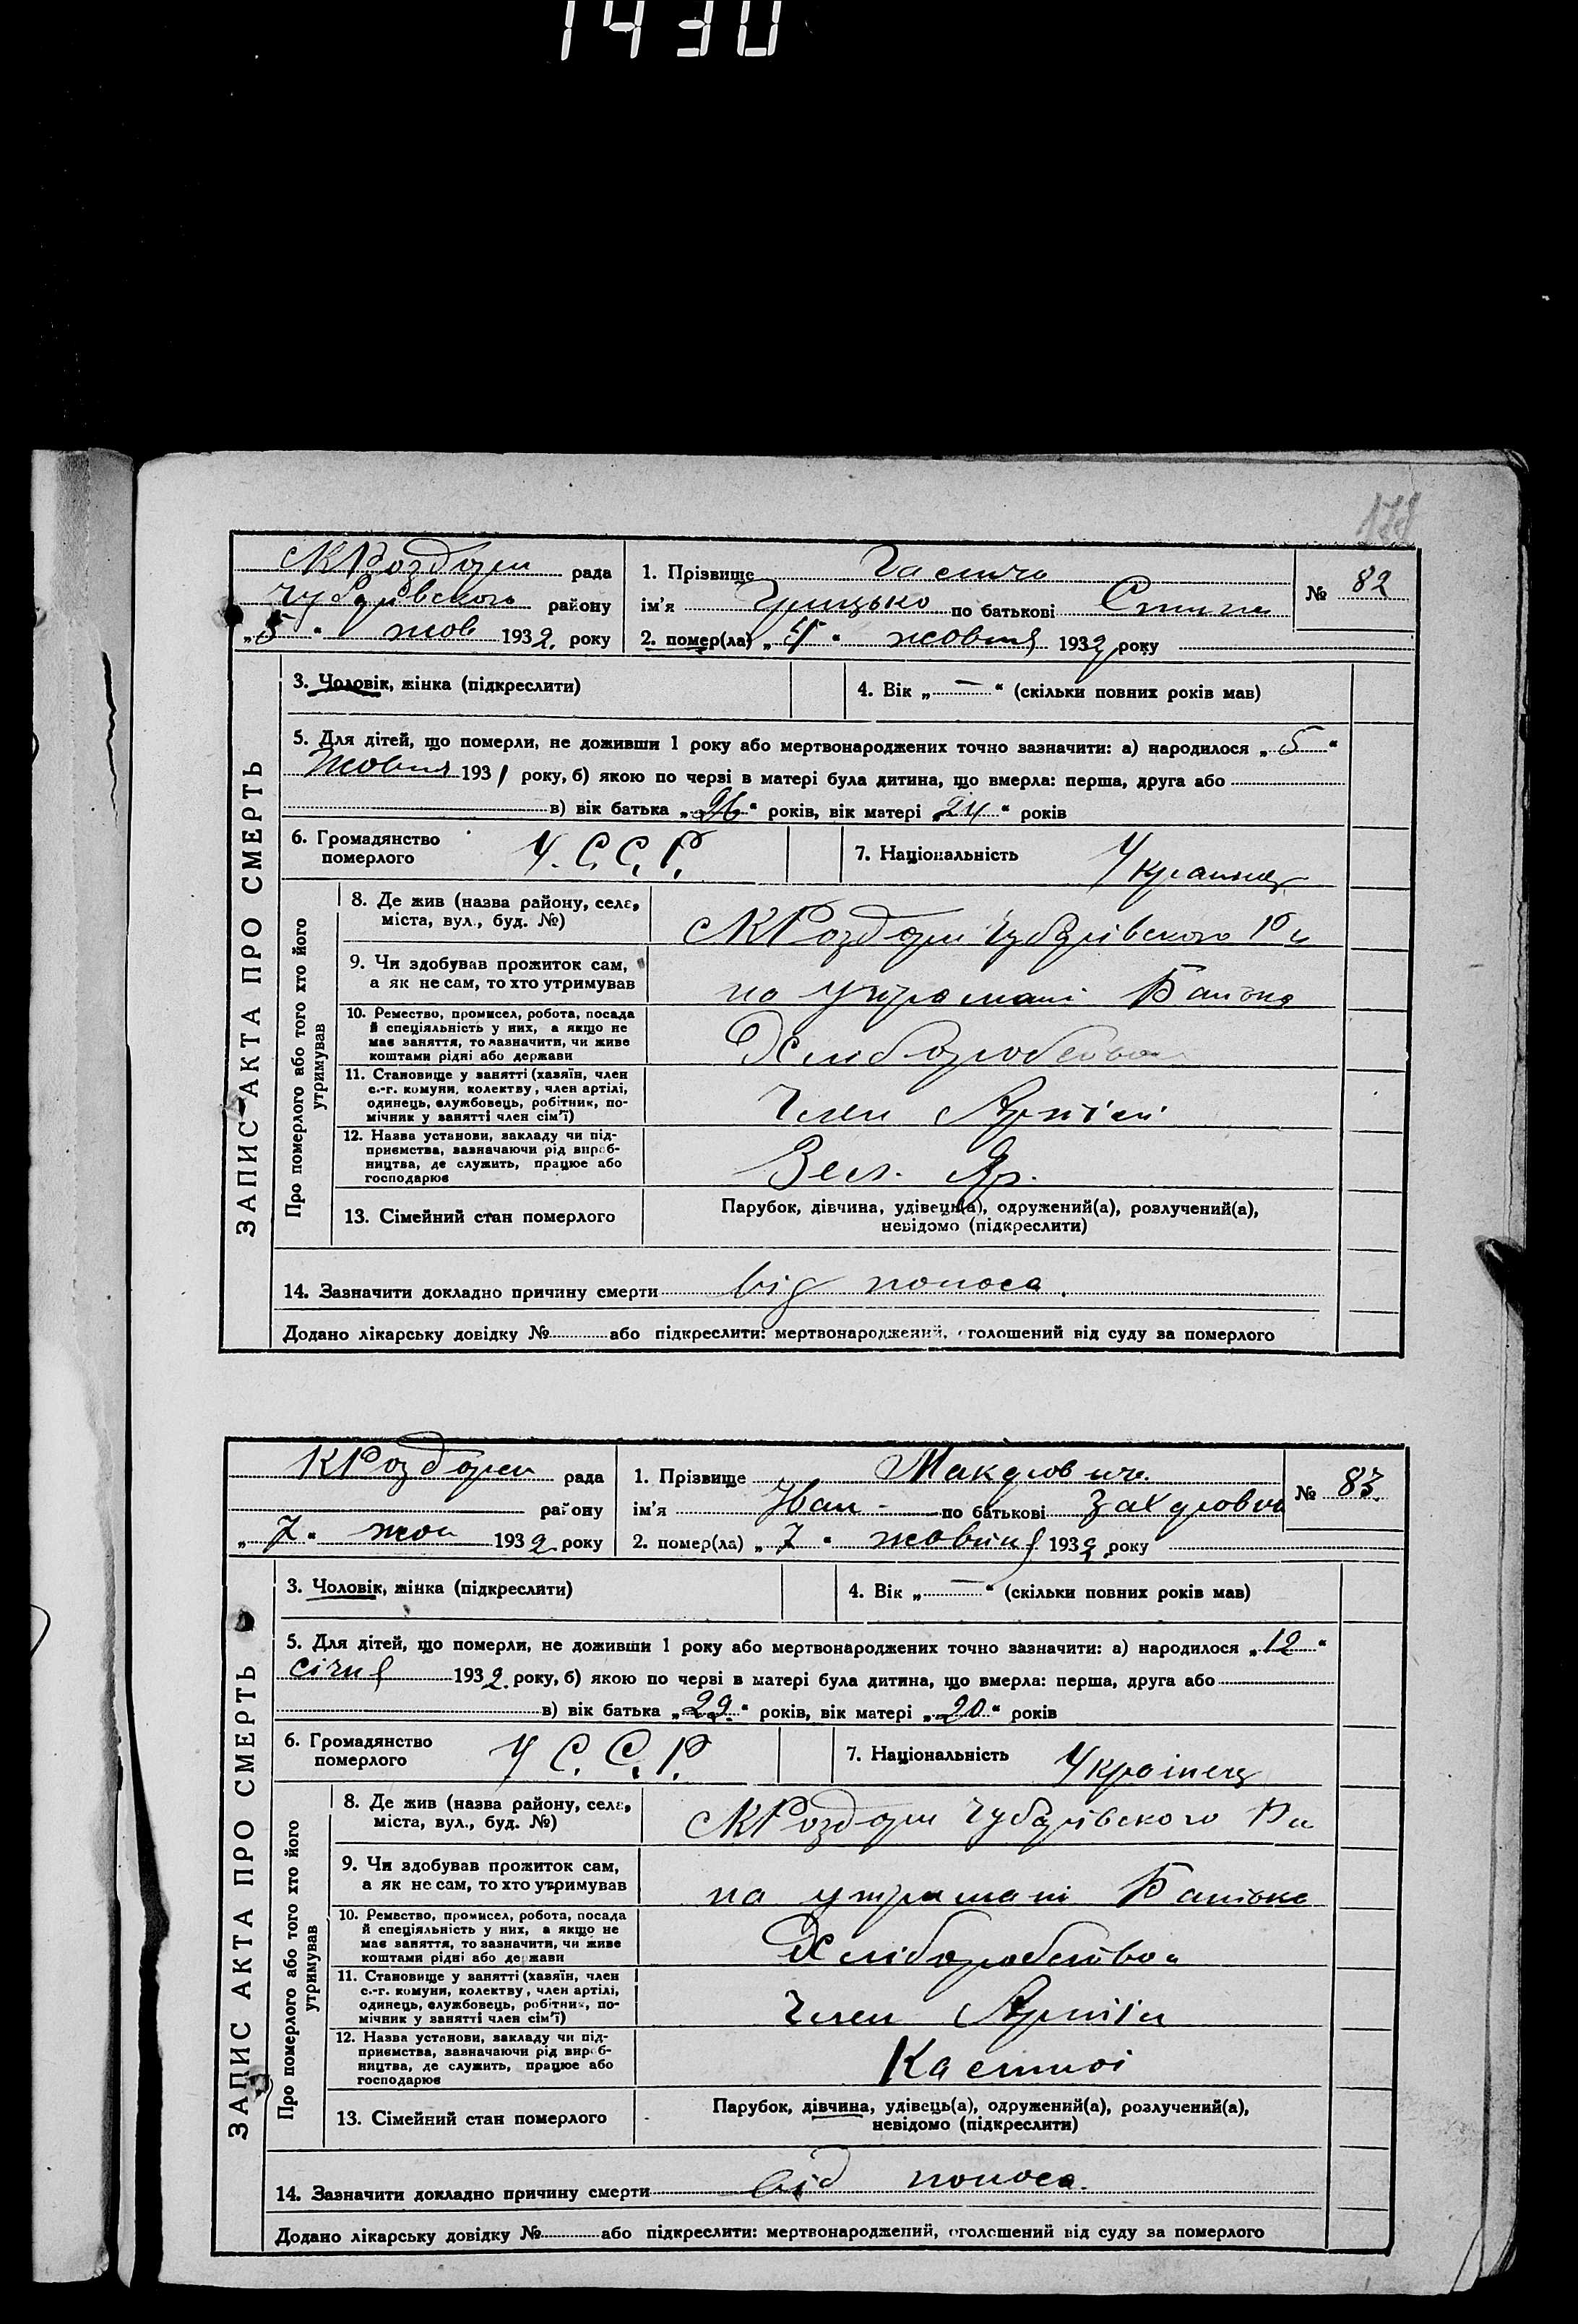 1430
178
КРоздори рада
Чубарівского району
„5“ жов 1932 року
1. Прізвище
ім'я Грицько по батькові
2. помер(ла) „4“ жовтня 1932 року
№ 82
ЗАПИС АКТА ПРО СМЕРТЬ
3. Чоловік, жінка (підкреслити)
4. Вік „ — “ (скільки повних років мав)
5. Для дітей, що померли, не доживши 1 року або мертвонароджених точно зазначити: а) народилося „5“
жовтня 1931 року, б) якою по черзі в матері була дитина, що вмерла: перша, друга або
в) вік батька „26“ років, вік матері „24“ років
6. Громадянство
померлого
У.С.С.Р.
7. Національність Украинец
Про померлого або того хто його
утримував
8. Де жив (назва району, села,
міста, вул., буд. №)
КРоздори Чубарівского Ра
9. Чи здобував прожиток сам,
а як не сам, то хто утримував
на утримані Батька
10. Ремество, промисел, робота, посада
й спеціяльність у них, а якщо не
має заняття, то зазначити, чи живе
коштами рідні або держави
Хліборобство
11. Становище у занятті (хазяїн, член
с.-г. комуни, колектву, член артілі,
одинець, службовець, робітник, по-
мічник у занятті член сім'ї)
Член Артілі
12. Назва установи, закладу чи під-
приємства, зазначаючи рід вироб-
ництва, де служить, працює або
господарює
13. Сімейний стан померлого
Парубок, дівчина, удівець(а), одружений(а), розлучений(а),
невідомо (підкреслити)
14. Зазначити докладно причину смерти від поноса.
Додано лікарську довідку № або підкреслити: мертвонароджений, оголошений від суду за померлого
КРоздори рада
району
„7“ жов 1932 року
1. Прізвище
ім'я Іван по батькові Захарович
2. помер(ла) „7“ жовтня 1932 року
№ 83
ЗАПИС АКТА ПРО СМЕРТЬ
3. Чоловік, жінка (підкреслити)
4. Вік „ — “ (скільки повних років мав)
5. Для дітей, що померли, не доживши 1 року або мертвонароджених точно зазначити: а) народилося „12“
січня 1932 року, б) якою по черзі в матері була дитина, що вмерла: перша, друга або
в) вік батька „22“ років, вік матері „20“ років
6. Громадянство
померлого
У С.С.Р.
7. Національність Українец
Про померлого або того хто його
утримував
8. Де жив (назва району, села,
міста, вул., буд. №)
КРоздори Чубарівского Ра
9. Чи здобував прожиток сам,
а як не сам, то хто утримував
на утримані Батька
10. Ремество, промисел, робота, посада
й спеціяльність у них, а якщо не
має заняття, то зазначити, чи живе
коштами рідні або держави
Хліборобство
11. Становище у занятті (хазяїн, член
с.-г. комуни, колектву, член артілі,
одинець, службовець, робітник, по-
мічник у занятті член сім'ї)
Член Артіли
12. Назва установи, закладу чи під-
приємства, зазначаючи рід вироб-
ництва, де служить, працює або
господарює
13. Сімейний стан померлого
Парубок, дівчина, удівець(а), одружений(а), розлучений(а),
невідомо (підкреслити)
14. Зазначити докладно причину смерти від поноса.
Додано лікарську довідку № або підкреслити: мертвонароджений, оголошений від суду за померлого